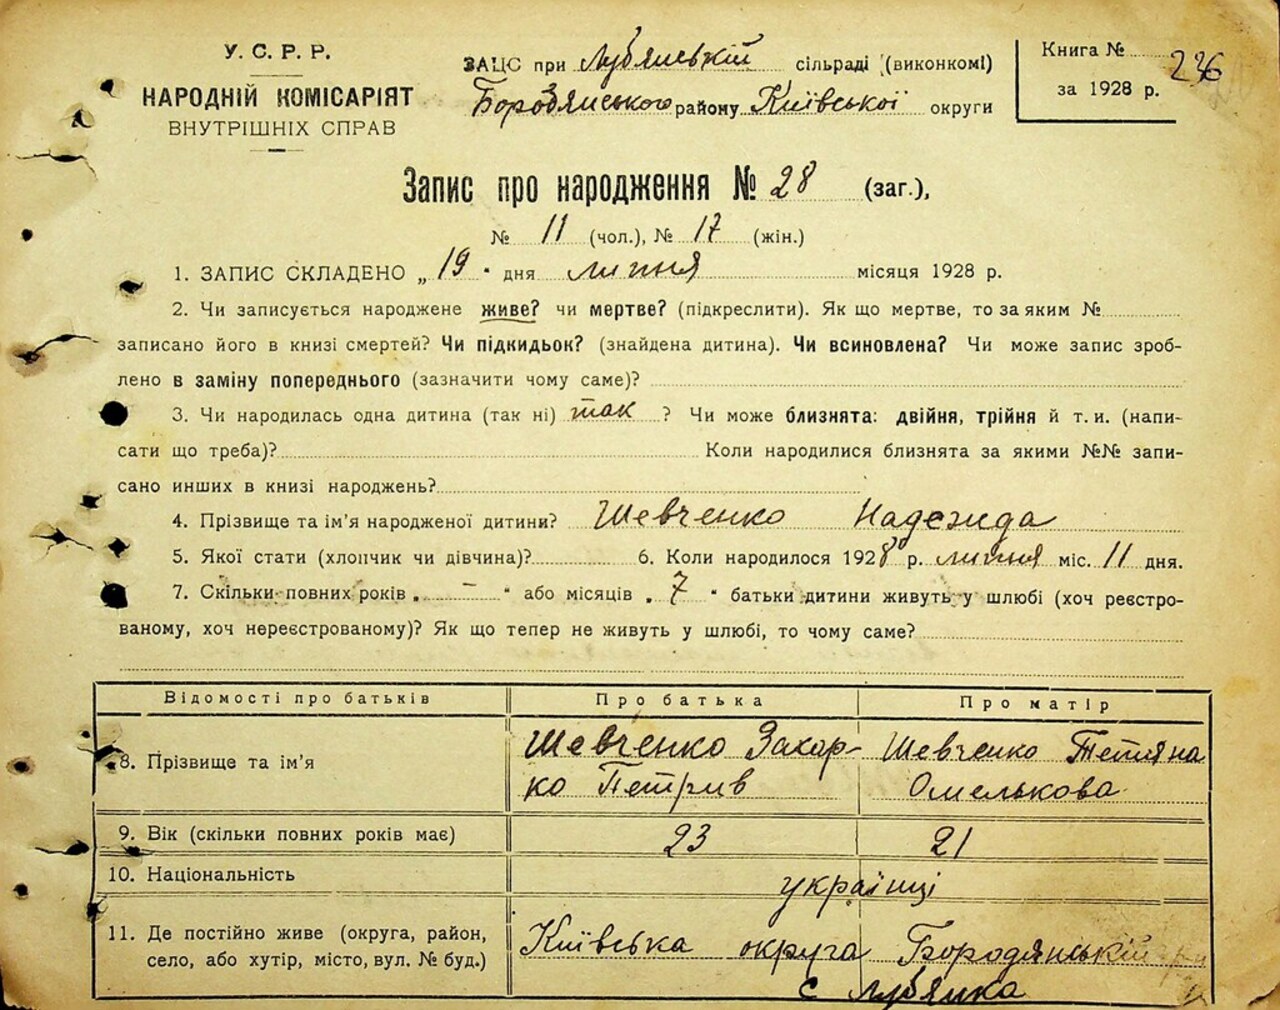 У. С. Р. Р.
НАРОДНІЙ КОМІСАРІЯТ
ВНУТРІШНІХ СПРАВ
ЗАЦС при Лубянській сільраді (виконкомі)
Бородянського району Київської округи
Книга №
за 1928 р.
236
Запис про народження № 28 (заг.),
№ 11 (чол.), № 17 (жін.)
1. ЗАПИС СКЛАДЕНО „19" дня липня місяця 1928 р.
2. Чи записується народжене живе? чи мертве? (підкреслити). Як що мертве, то за яким №
записано його в книзі смертей? Чи підкидьок? (знайдена дитина). Чи всиновлена? Чи може запис зроб-
лено в заміну попереднього (зазначити чому саме)?
3. Чи народилась одна дитина (так ні) так ? Чи може близнята: двійня, трійня й т. и. (напи-
сати що треба)? Коли народилися близнята за якими №№ запи-
сано инших в книзі народжень?
4. Прізвище та ім'я народженої дитини? Шевченко Надежда
5. Якої стати (хлопчик чи дівчина)? 6. Коли народилося 1928 р. липня міс. 11 дня.
7. Скільки повних років „ – " або місяців „ 7 " батьки дитини живуть у шлюбі (хоч реєстро-
ваному, хоч нереєстрованому)? Як що тепер не живуть у шлюбі, то чому саме?
Відомості про батьків Про батька Про матір
8. Прізвище та ім'я
Шевченко Захар-
ко Петрив
Шевченко Тетяна
Омелькова
9. Вік (скільки повних років має) 23 21
10. Національність українці
11. Де постійно живе (округа, район,
село, або хутір, місто, вул. № буд.)
Київська округа Бородянській
с Лубянка